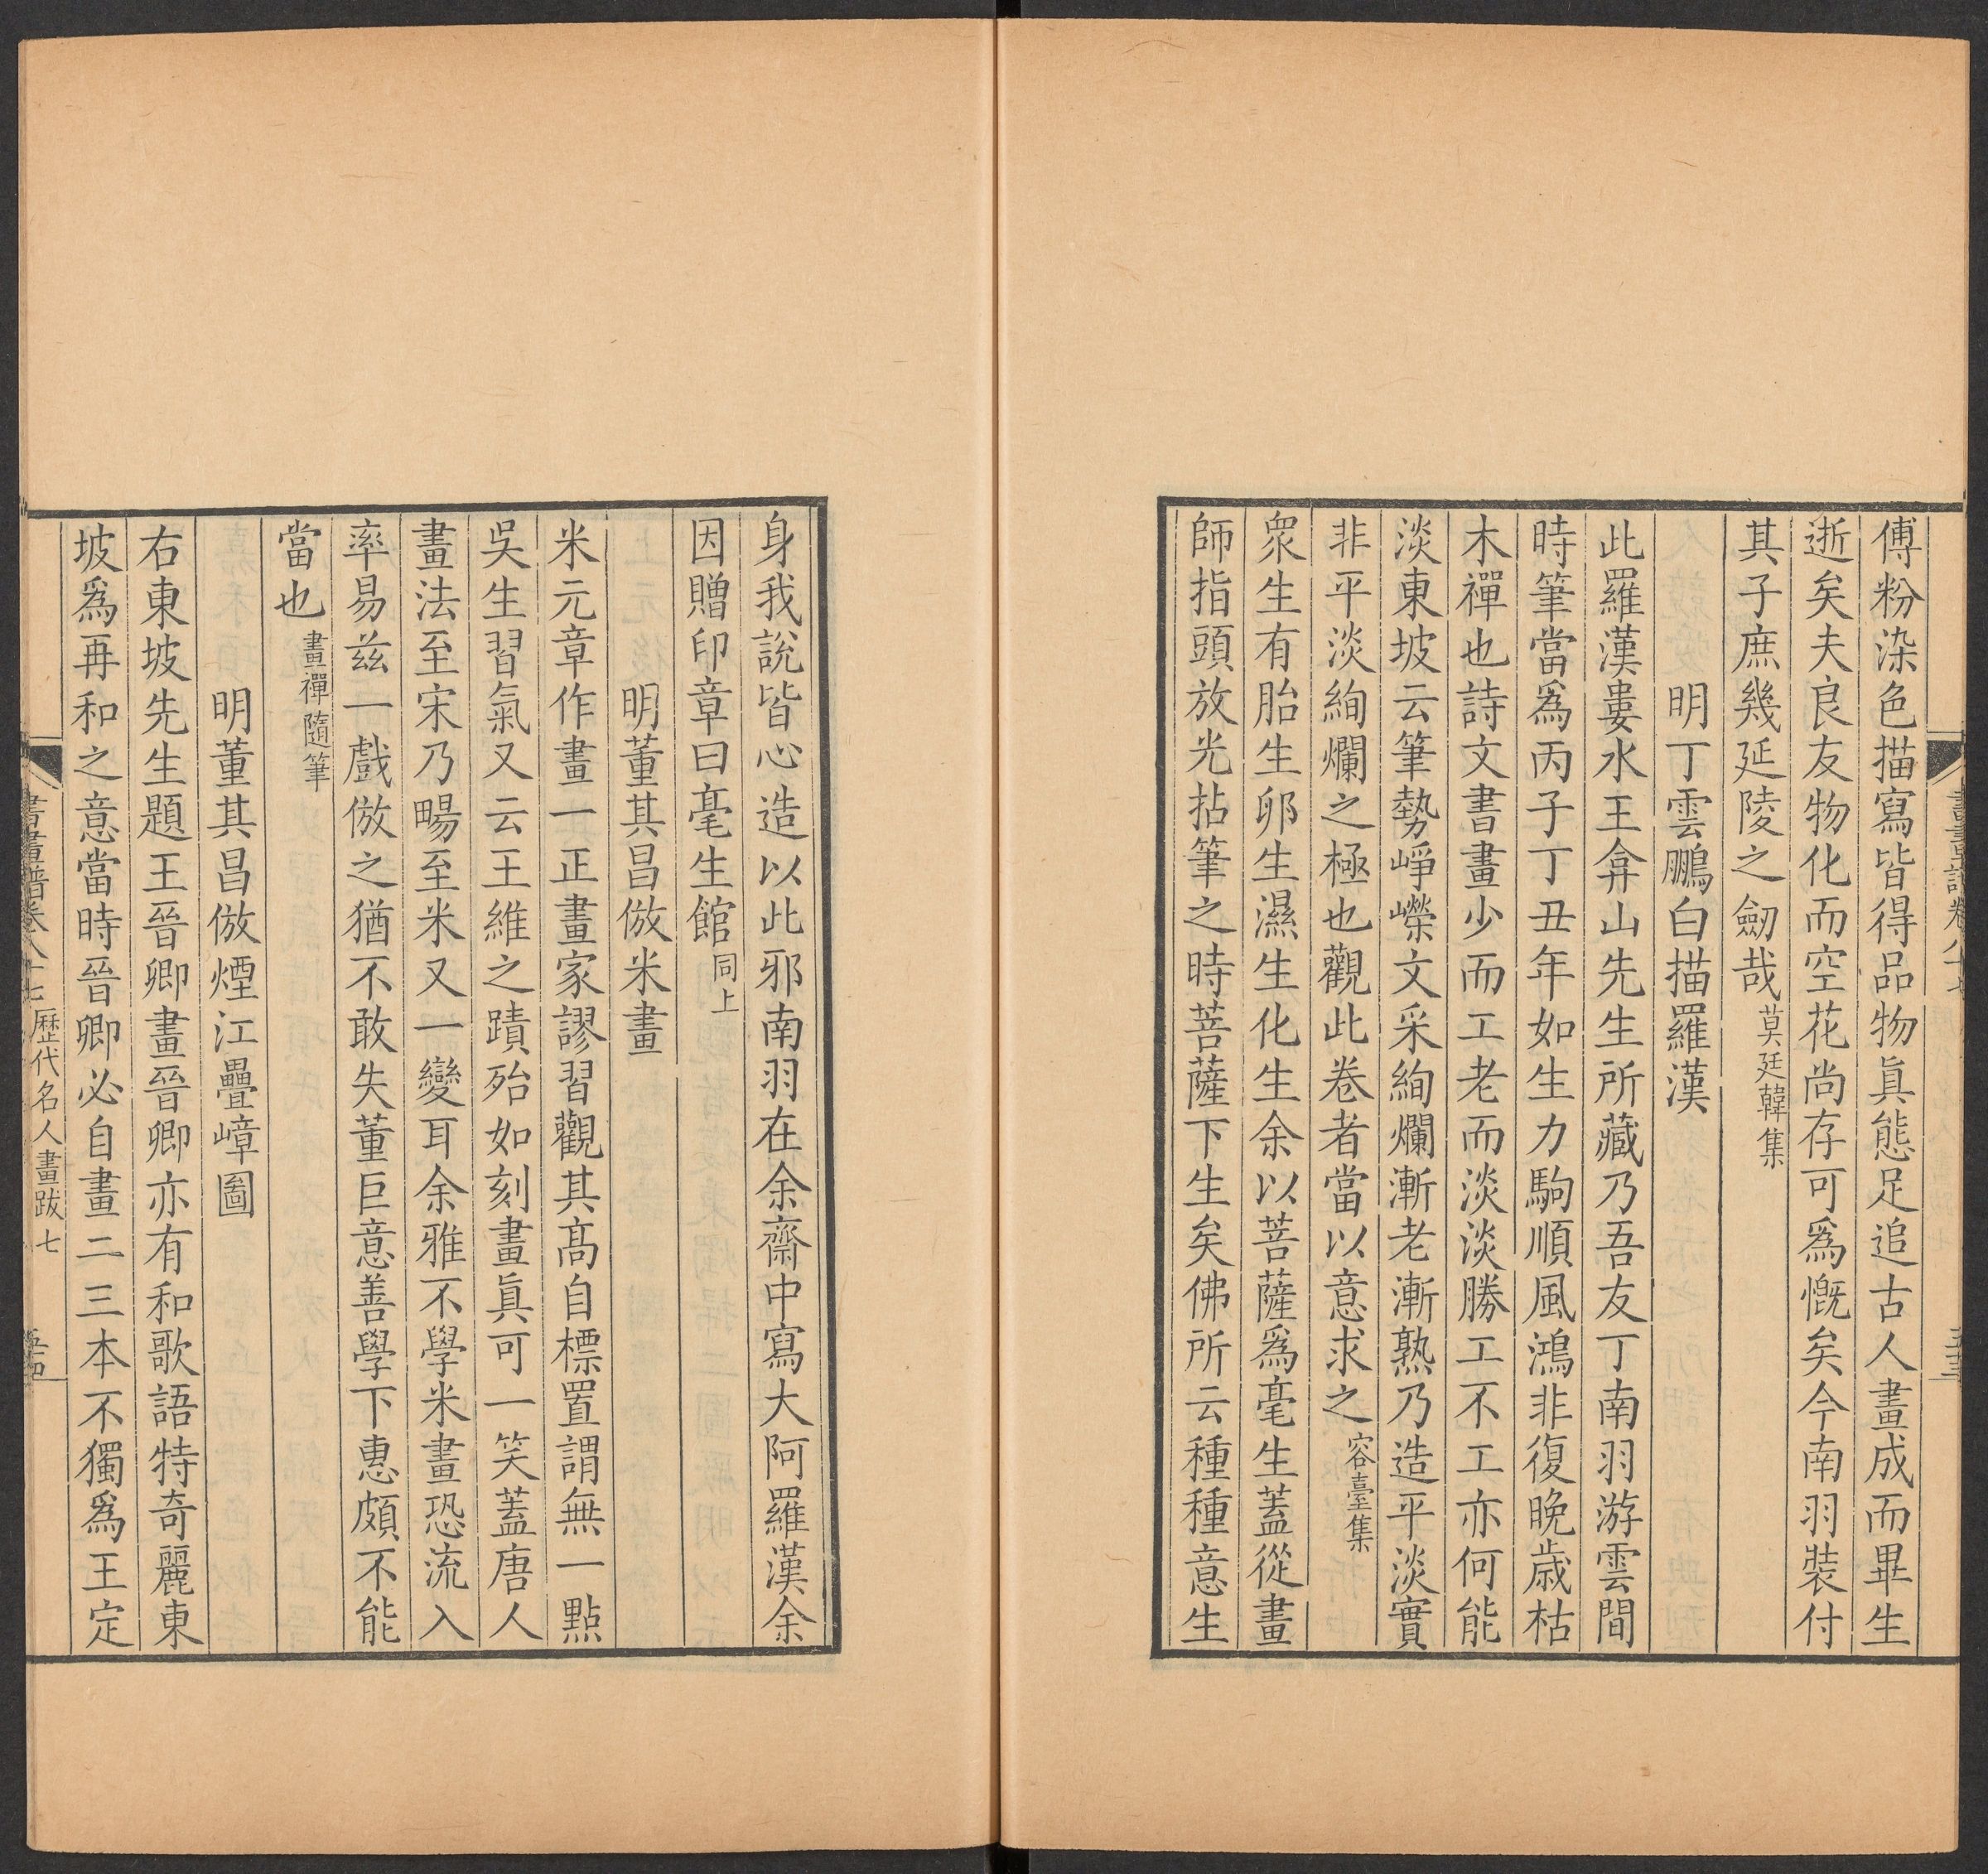 傅粉染色描寫皆得品物眞態足追古人畫成而畢生
逝矣夫良友物化而空花尚存可爲慨矣今南羽裝付
其子庶幾延陵之劒哉莫廷韓集
明丁雲鵬白描羅漢
此羅漢婁水王弇山先生所藏乃吾友丁南羽游雲間
時筆當爲丙子丁丑年如生力駒順風鴻非復晚歲枯
木禪也詩文書畫少而工老而淡淡勝工不工亦何能
淡東坡云筆勢崢嶸文采絢爛漸老漸熟乃造平淡實
非平淡絢爛之極也觀此卷者當以意求之容臺集
衆生有胎生卵生濕生化生余以菩薩爲毫生蓋從畫
師指頭放光拈筆之時菩薩下生矣佛所云種種意生
身我說皆心造以此邪南羽在余齋中寫大阿羅漢余
因贈印章曰毫生館同上
明董其昌倣米畫
米元章作畫一正畫家謬習觀其高自標置謂無一點
吳生習氣又云王維之蹟殆如刻畫眞可一笑蓋唐人
畫法至宋乃暢至米又一變耳余雅不學米畫恐流入
率易兹一戲倣之猶不敢失董巨意善學下惠頗不能
當也畫禪隨筆
明董其昌倣煙江疊嶂圖
右東坡先生題王晉卿畫晉卿亦有和歌語特奇麗東
坡爲再和之意當時晉卿必自畫二三本不獨爲王定
書畫譜卷八十七 歷代名人畫跋七